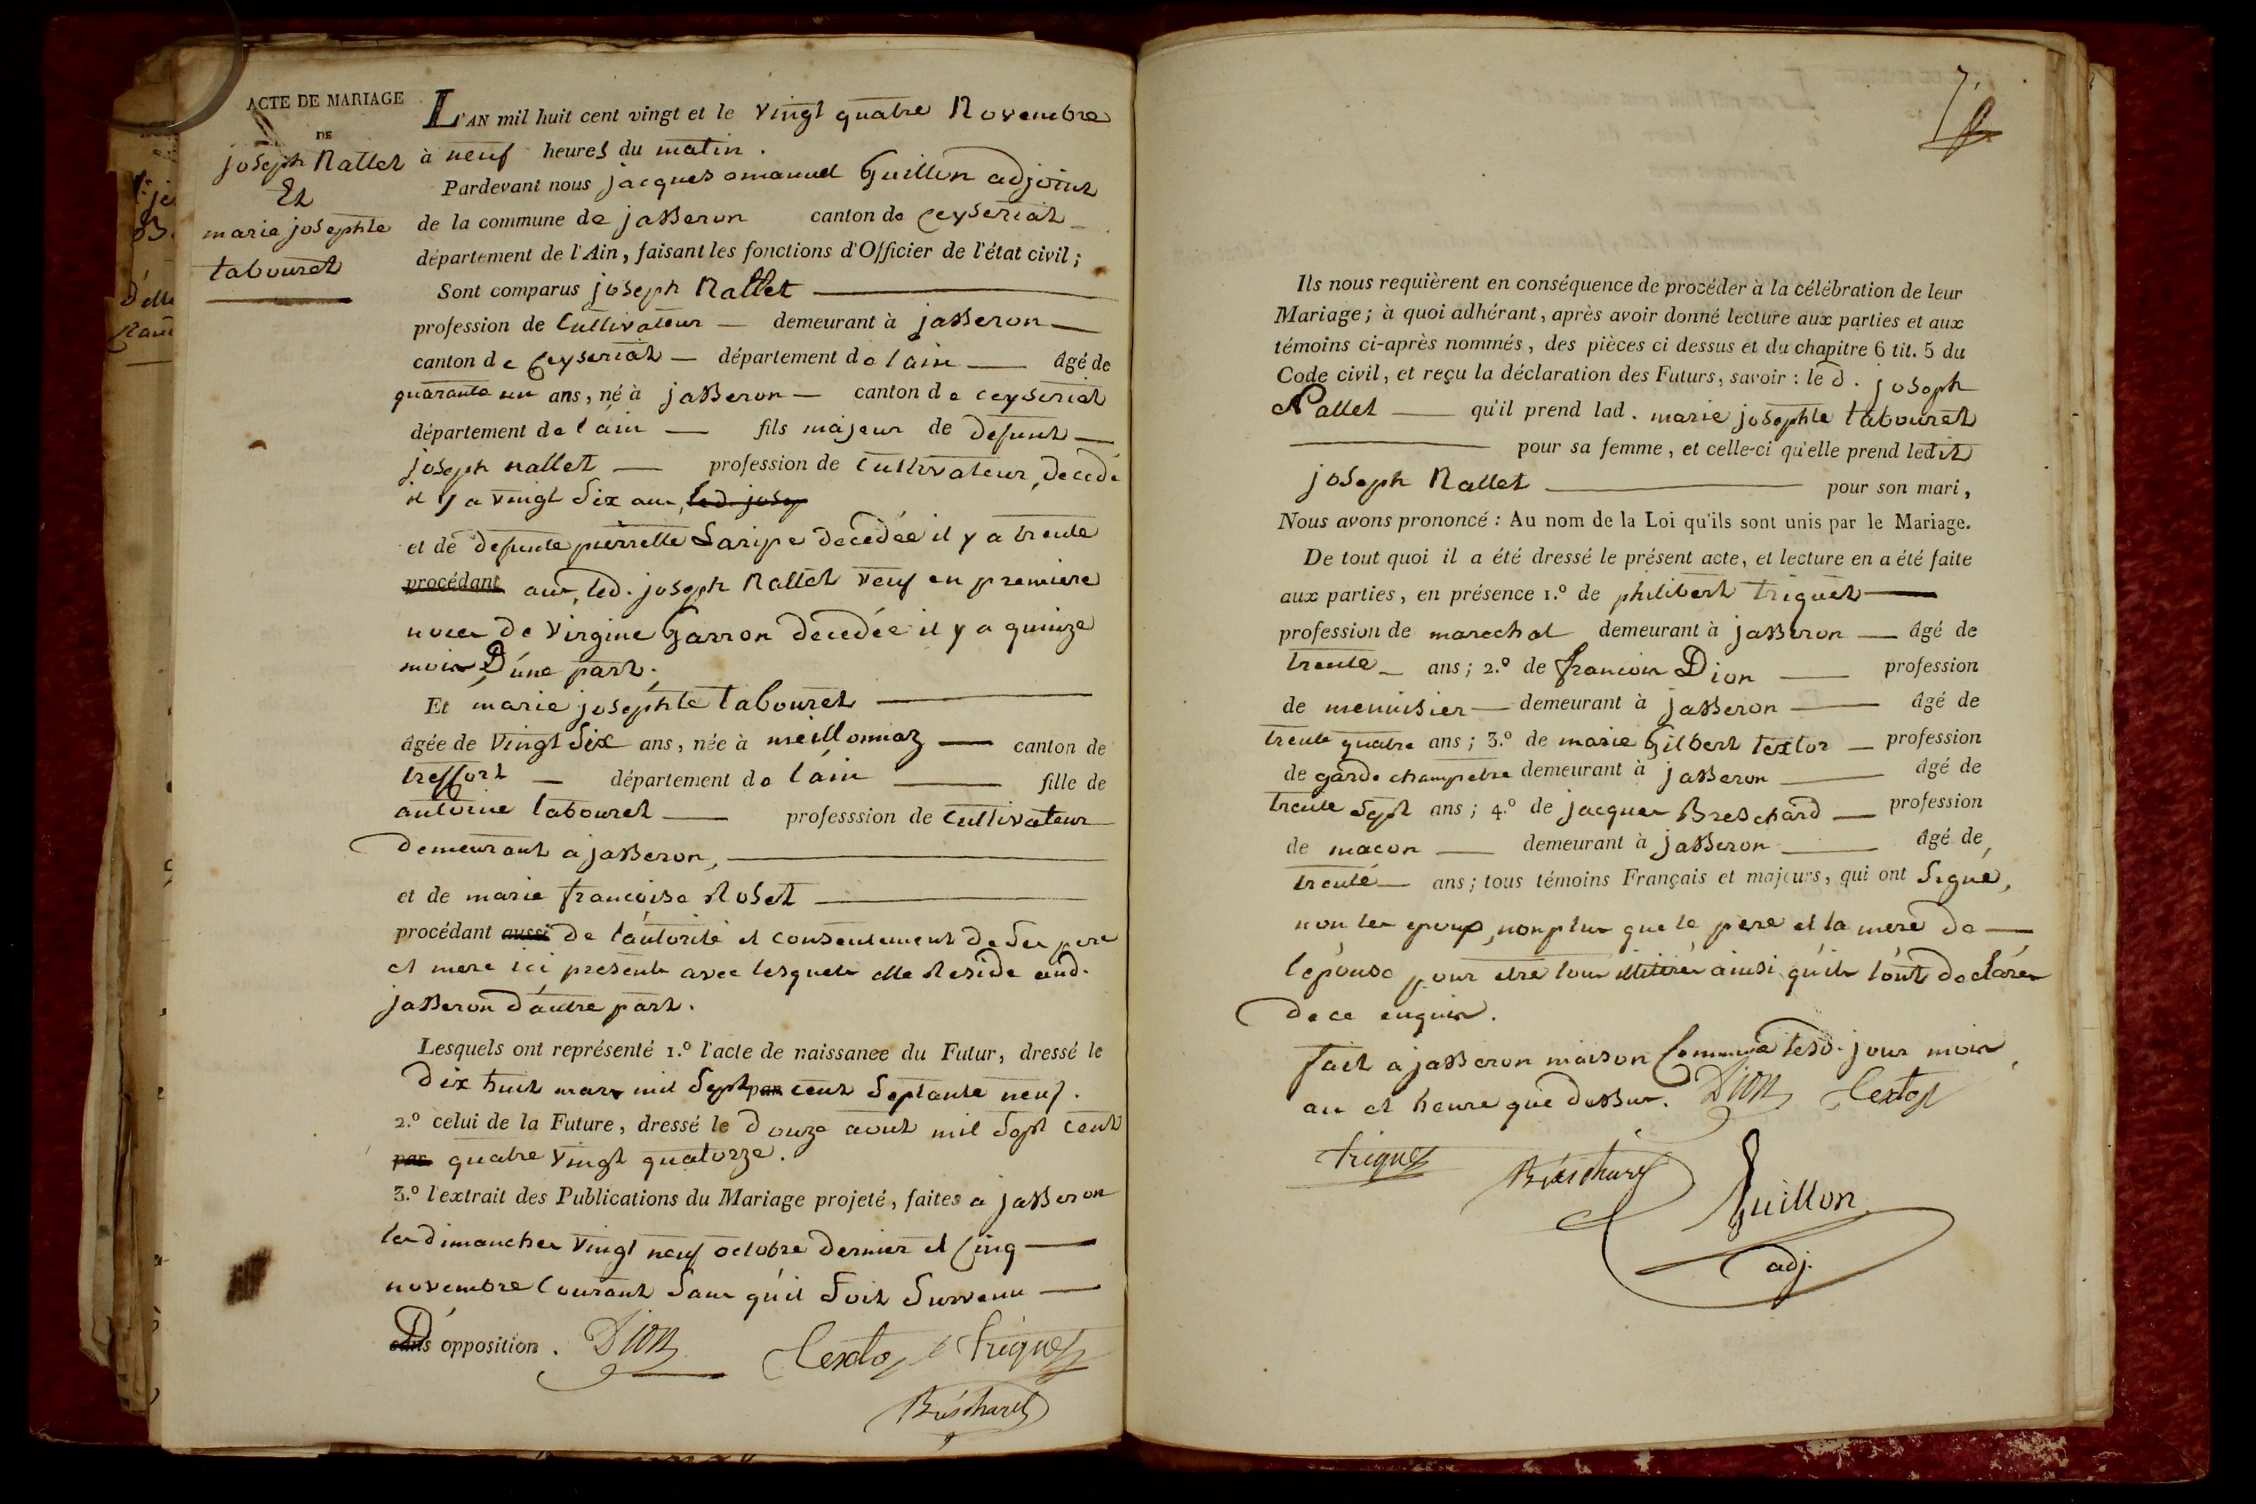 ACTE DE MARIAGE
DE
joseph Nallet
Et
marie josephte
tabouret
L'AN mil huit cent vingt et le vingt quatre Novembre
à neuf heures du matin .
Pardevant nous jacques emanuel Guillon adjoint
de la commune de jasseron canton de Ceyseriat
département de l'Ain, faisant les fonctions d'Officier de l'état civil ;
Sont comparus joseph Nallet
profession de Cultivateur demeurant à jasseron
canton de Ceyseriat département de l'ain âgé de
quarante un ans, né à jasseron canton de ceyseriat
département de l'ain fils majeur de defunt
joseph nallet profession de Cultivateur, decedé
il y a vingt Six ans, led. josep
et de defunte pierrette Saripe decedée il y a trente
procédant ans, led. joseph Nallet veuf en premiere
noces de Virgine Garron decedée il y a quinze
mois, D'une part ;
Et marie josephte tabouret
âgée de vingt Six ans, née à meillonnaz canton de
treffort département de l'ain fille de
antoine tabouret professsion de Cultivateur
demeurant a jasseron,
et de marie francoise Roset
procédant aussi de l'autorité et consentement de Ses pere
et mere ici presents avec lesquels elle Reside aud.
jasseron d'autre part.
Lesquels ont représenté 1.º l'acte de naissance du Futur, dressé le
dix huit mars mil Sept par cent Septante neuf.
2.º celui de la Future, dressé le douze aout mil Sept cent
par quatre vingt quatorze.
3.º l'extrait des Publications du Mariage projeté, faites a jasseron
les dimanches vingt neuf octobre dernier et Cinq
novembre Courant Sans qu'il Soit Survenu
sans D'opposition . Dion Textor Triquet
Bréschard
7
Ils nous requièrent en conséquence de procéder à la célébration de leur
Mariage ; à quoi adhérant, après avoir donné lecture aux parties et aux
témoins ci-après nommés, des pièces ci dessus et du chapitre 6 tit. 5 du
Code civil, et reçu la déclaration des Futurs, savoir : le d. joseph
Nallet qu'il prend lad. marie josephte tabouret
pour sa femme, et celle-ci qu'elle prend ledit
joseph Nallet pour son mari,
Nous avons prononcé : Au nom de la Loi qu'ils sont unis par le Mariage.
De tout quoi il a été dressé le présent acte, et lecture en a été faite
aux parties, en présence 1.º de philibert triquet
profession de marechal demeurant à jasseron âgé de
trente ans ; 2.º de francois Dion profession
de menuisier demeurant à jasseron âgé de
trente quatre ans ; 3.º de marie Gilbert textor profession
de garde champetre demeurant à jasseron âgé de
trente Sept ans ; 4.º de jacques Breschard profession
de macon demeurant à jasseron âgé de
trente ans ; tous témoins Français et majeurs, qui ont Signé,
non les epoux, non plus que le pere et la mere de
l'epouse pour etre tous illitérés ainsi qu'ils l'ont declarés
de ce enquis.
fait a jasseron maison Commune lesd. jour mois
an et heure que dessus. Dion Textor
Triquet Bréschard
Guillon
adj.